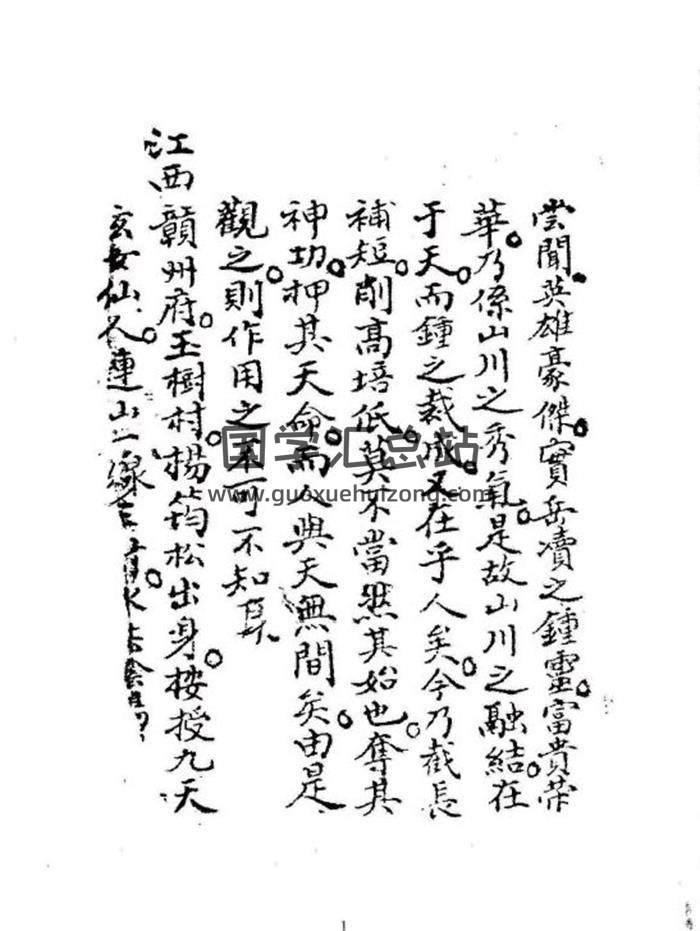 嘗聞。英雄豪傑。實岳瀆之鍾靈。富貴榮
華。乃係山川之秀氣。是故山川之融結。在
于天。而鍾之裁成。又在乎人矣。今乃截長
補短。削高培低。莫不當然其始也。奪其
神功。押其天命。而人與天無間矣。由是
觀之。則作用之不可不知耳
江西贛州府。王樹村。楊筠松出身。桉授九天
玄女仙人。連山一線
国学汇总站
www.guoxuehuizong.com
1